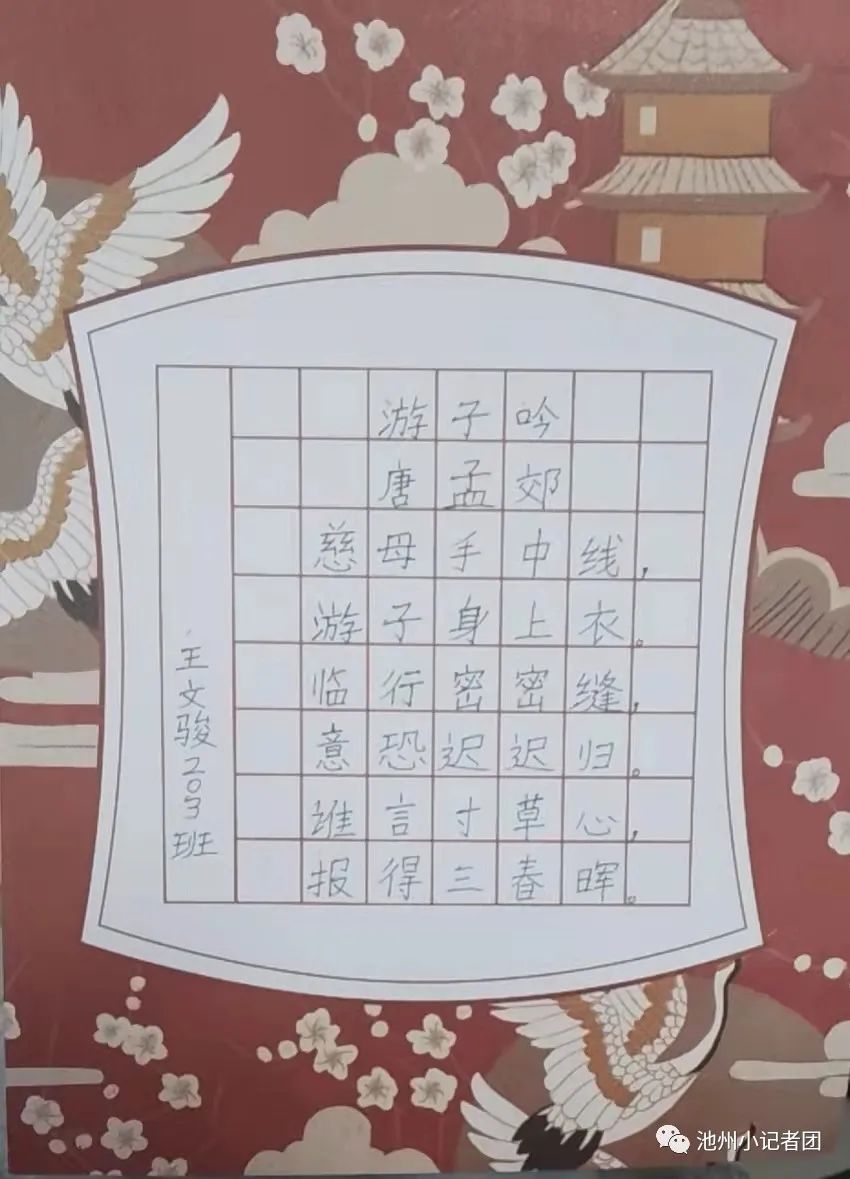 游子吟
唐孟郊
慈母手中线，
游子身上衣。
临行密密缝，
意恐迟迟归。
谁言寸草心，
报得三春晖。
王文骏203班
池州小记者团